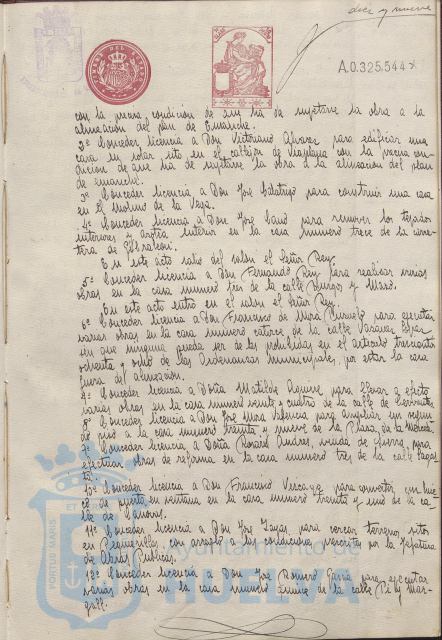 diez y nueve
A.0.325.544
con la precisa condición de que ha de sujetarse la obra a la
alineación del plan de Ensanche.
2º Conceder licencia a Don Victoriano Alvarez para edificar una
casa en solar sito en el cabezo de Vistaplana con la precisa con-
dicion de que ha de sujetarse la obra a la alineacion del plan
de ensanche.
3º Conceder licencia a Don José para construir una casa
en el Molino de la Vega.
4º Conceder licencia a Don José Cano para remover los tejados
interiores y azotea interior en la casa número trece de la carre-
tera de Gibraleon.
En este acto salio del salon el Señor Rey.
5º Conceder licencia a Don Fernando Rey para realizar varias
obras en la casa número tres de la calle Burgos y Mazo.
En este acto entro en el salon el Señor Rey.
6º Conceder licencia a Don Francisco de Mora para ejecutar
varias obras en la casa número catorce de la calle Vazquez Lopez
sin que ninguna pueda ser de las prohibidas en el articulo trescientos
ochenta y ocho de las Ordenanzas municipales, por estar la casa
fuera de alineación.
7º Conceder licencia a Doña Matilde Aguirre para llevar a efecto
varias obras en la casa número veinte y cuatro de la calle de
8º Conceder licencia a Don José Mora Valencia para ampliar un segun-
do piso a la casa número treinta y nueve de la Plaza de la Merced.
9º Conceder licencia a Doña Rosario Andres, viuda de Guerra, para
efectuar obras de reforma en la casa número tres de la calle Sagas-
ta.
10º Conceder licencia a Don Francisco Vizcaya para convertir un hue-
co de puerta en ventana en la casa número treinta y uno de la ca-
lle de Canovas.
11º Conceder licencia a Don José Zayas, para cercar terrenos sitos
en Peguerillas, con arreglo a las condiciones por la Jefatura
de Obras Publicas.
12º Conceder licencia a Don José Romero Garcia para ejecutar
varias obras en la casa número quince de la calle Pi y Mar-
gall.
PORTUS MARIS ET
Ayuntamiento de
HUELVA